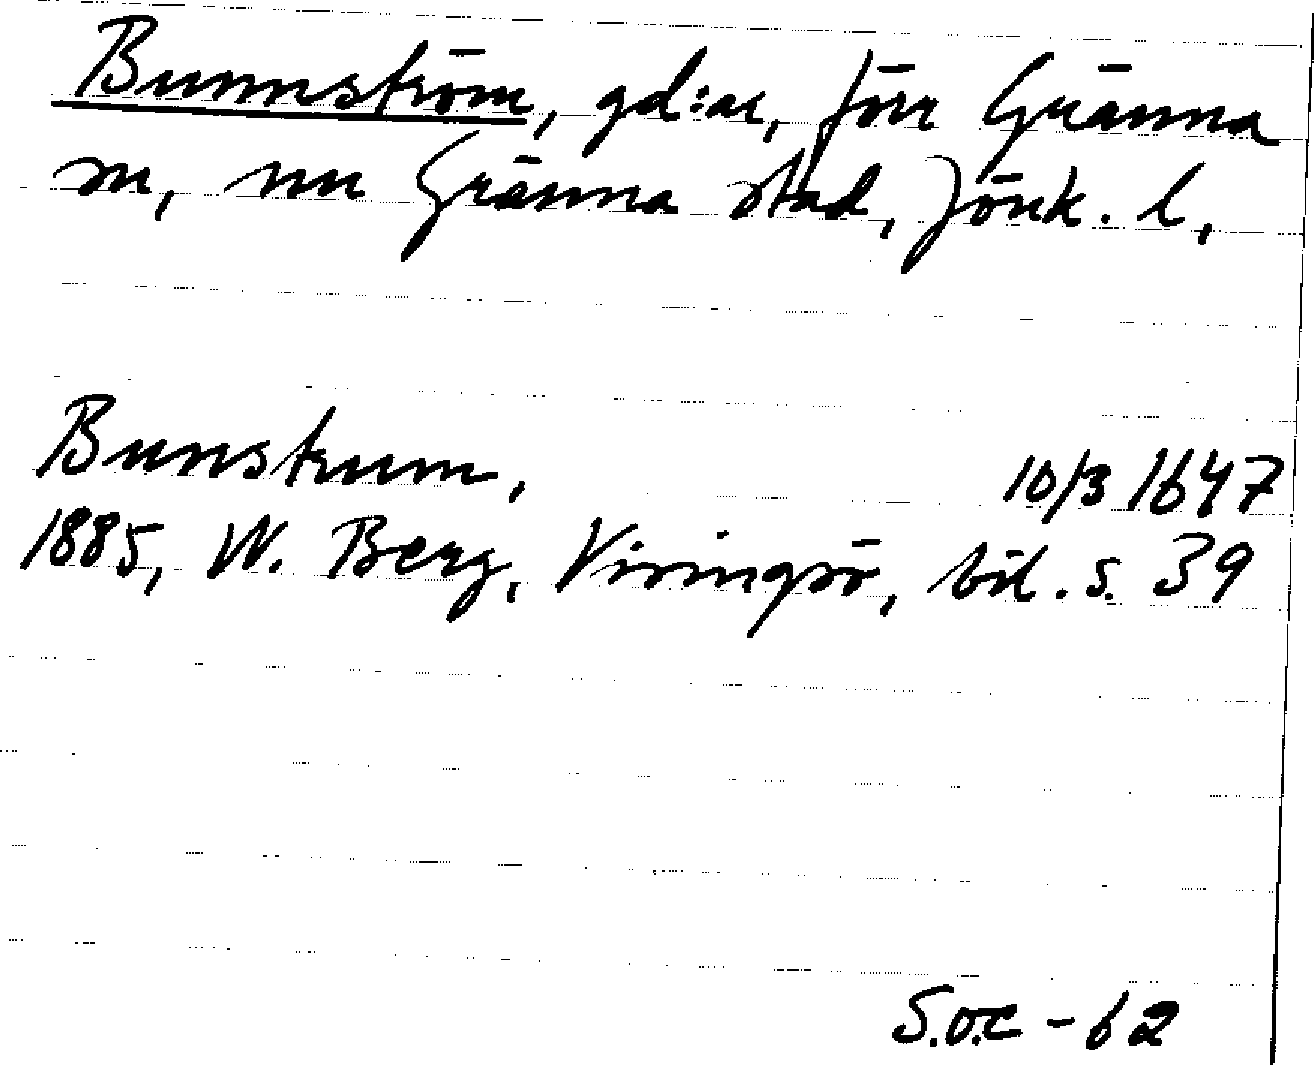 Bunnström, gd:ar, förr Gränna
sn, nu Gränna stad, Jönk. l,
Bunstrum, 10/3 1647
1885, W. Berg, Visingsö, bil. s. 39
S.O.C - 62